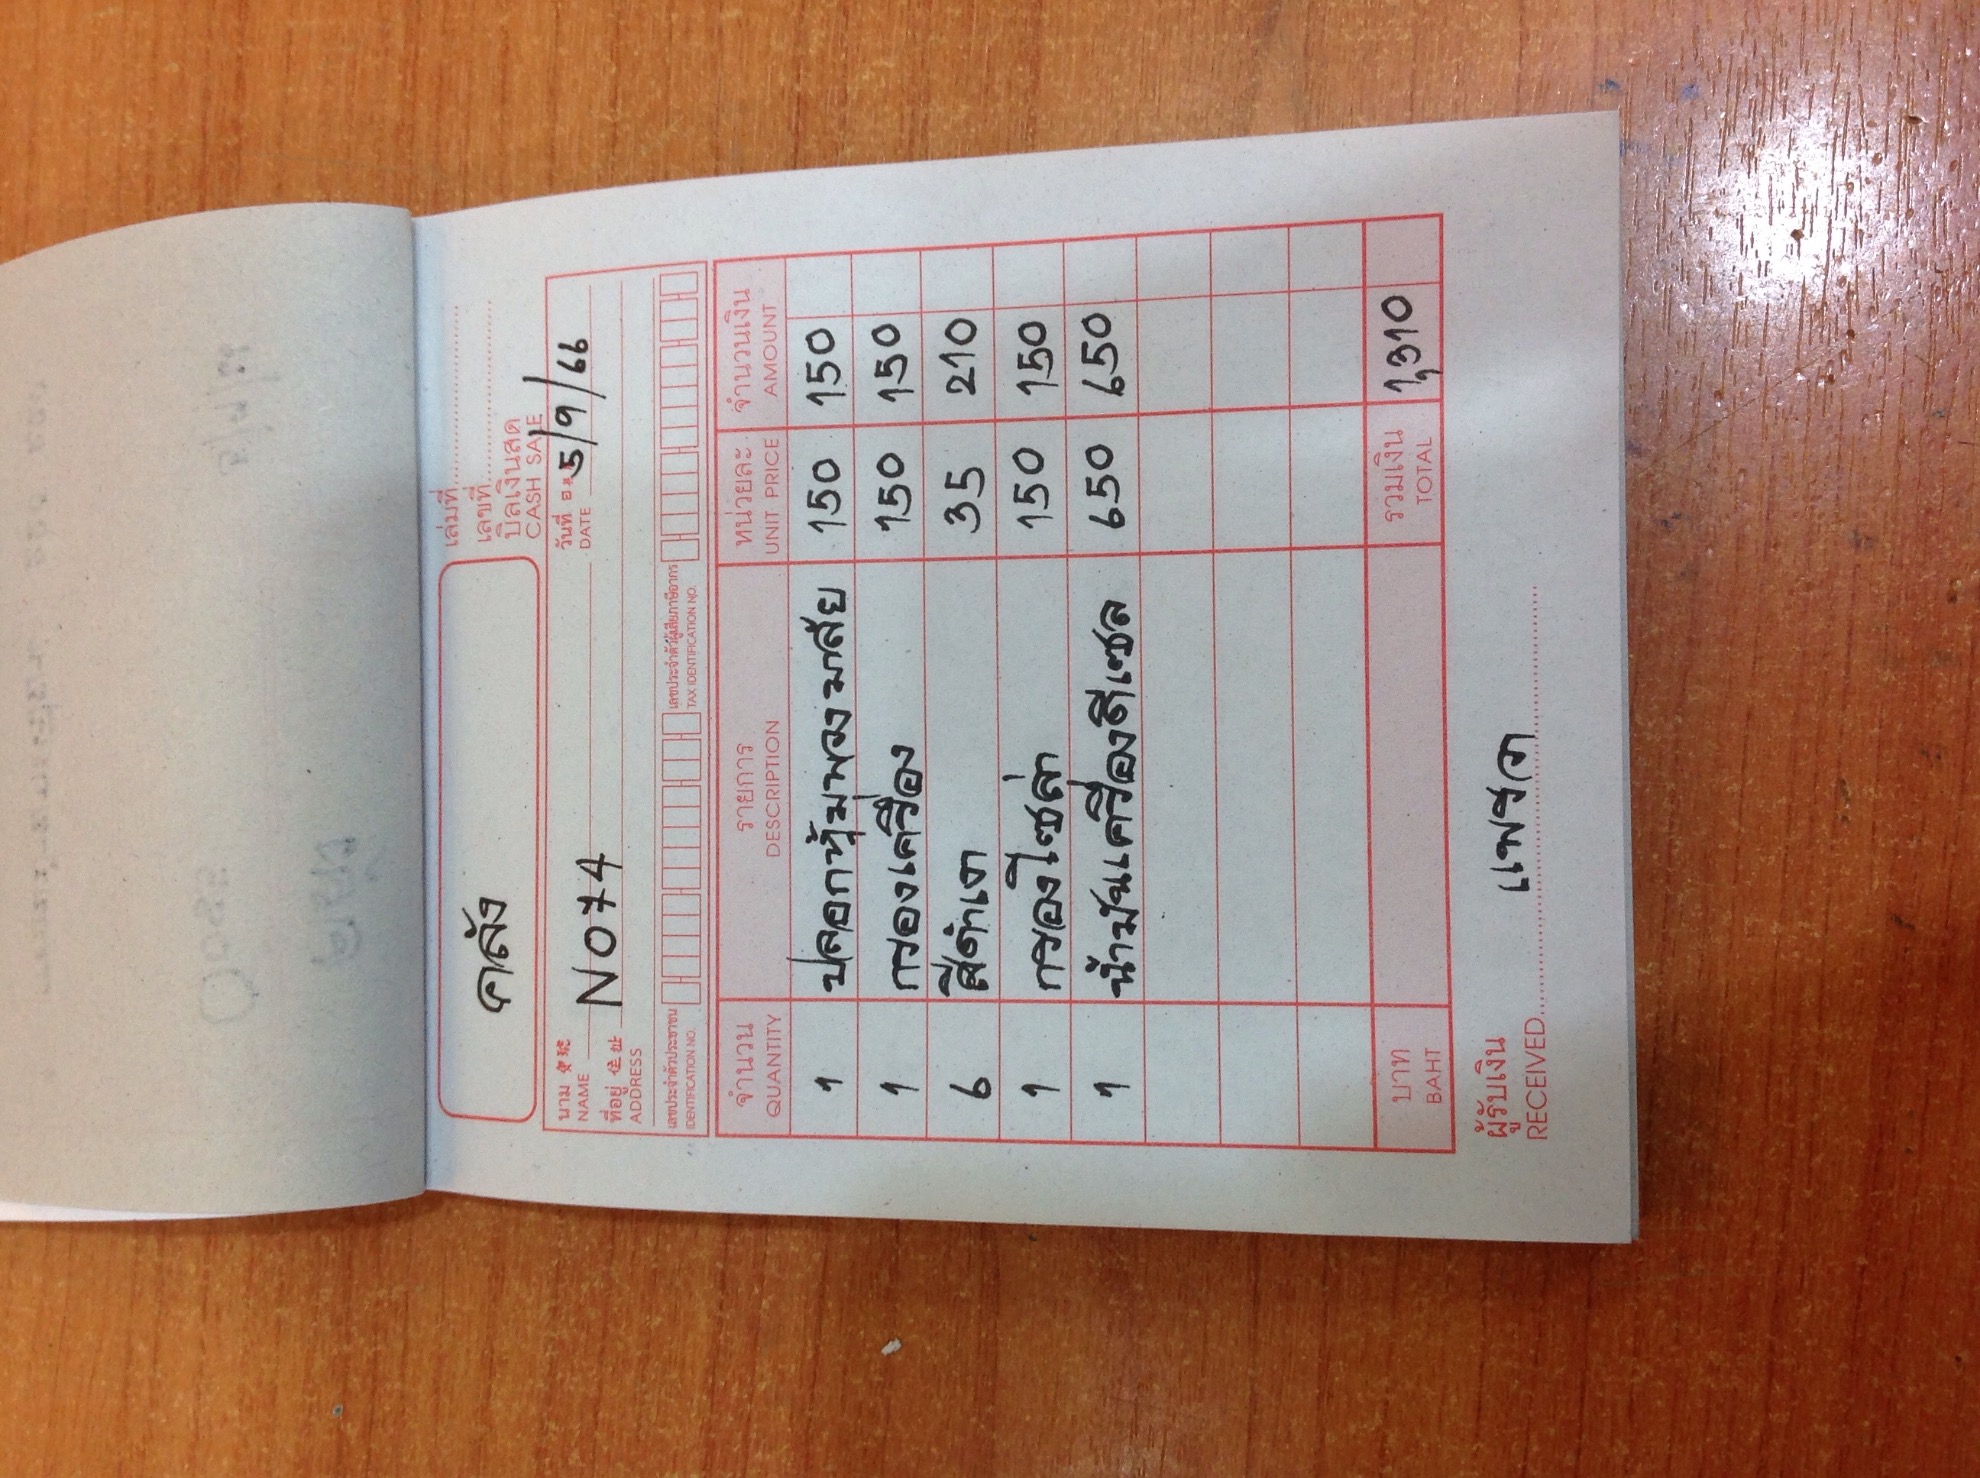 คลัง
เล่มที่
เลขที่
บิลเงินสด
CASH SALE
นาม NAME N074 วันที่ DATE 5/9/66
ที่อยู่ 住址 ADDRESS
เลขประจำตัวประชาชน IDENTIFICATION NO. เลขประจำตัวผู้เสียภาษีอากร TAX IDENTIFICATION NO.
จำนวน QUANTITY รายการ DESCRIPTION หน่วยละ UNIT PRICE จำนวนเงิน AMOUNT
1 ปลอกหุ้มพวงมาลัย 150 150
1 กรองเครื่อง 150 150
6 สีดำเงา 35 210
1 กรองโซล่า 150 150
1 น้ำมันเครื่องดีเซล 650 650
บาท BAHT รวมเงิน TOTAL 1,310
ผู้รับเงิน RECEIVED แพรวา